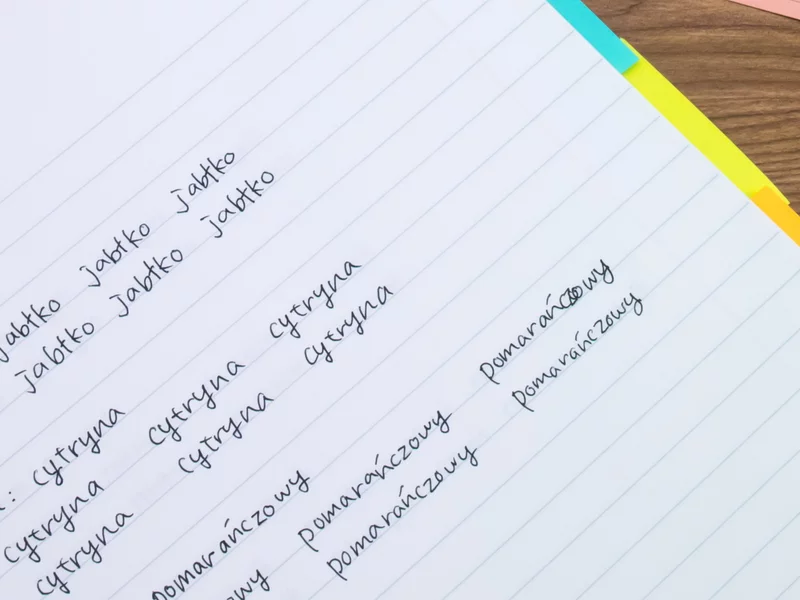 jabłko jabłko jabłko
jabłko jabłko jabłko
: cytryna
cytryna cytryna cytryna
cytryna cytryna cytryna
pomarańczowy
pomarańczowy pomarańczowy
pomarańczowy pomarańczowy